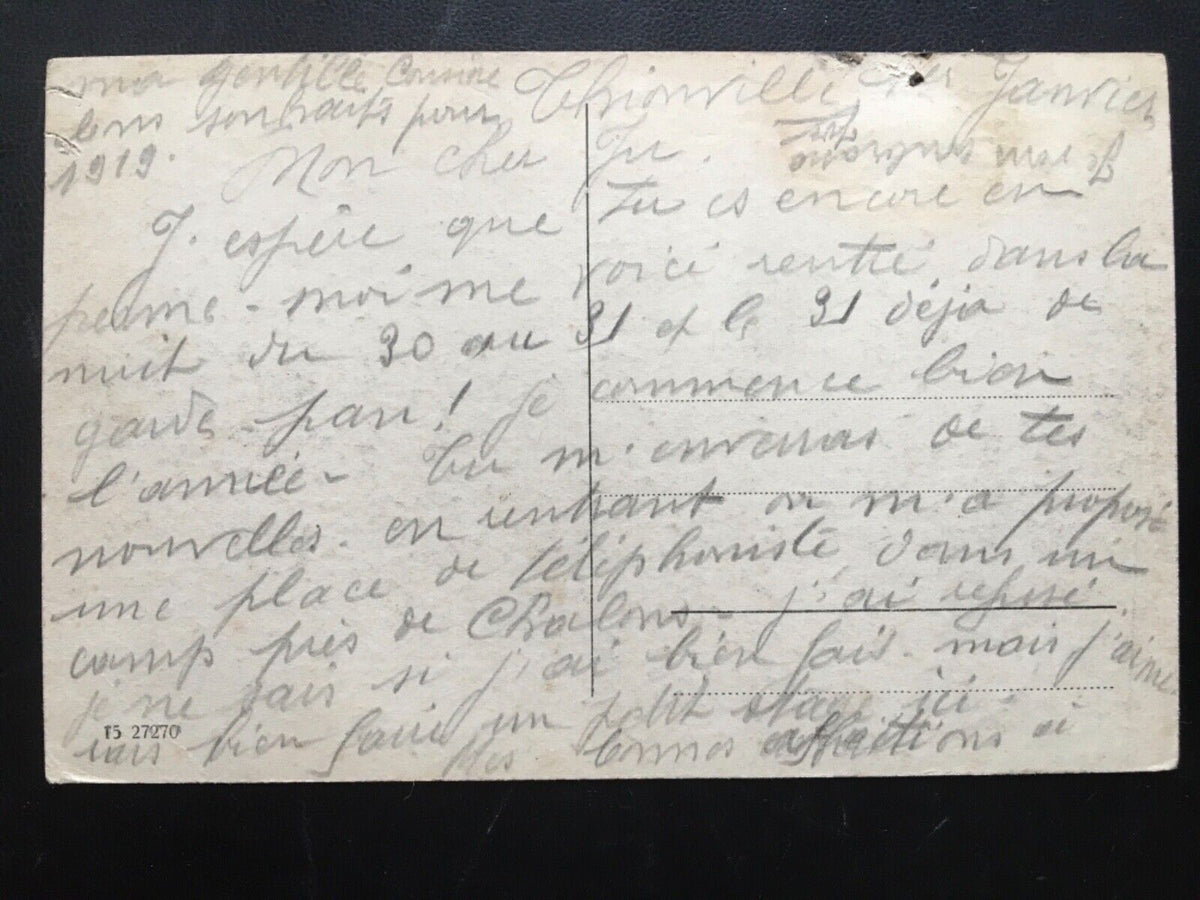 ma gentille Cousine
bons souhaits pour
1919.
Thionville 1er Janvier
Mon cher Ju.
J'espère que tu es encore en
perme - moi me voici rentré, dans la
nuit du 30 au 31 et le 31 déjà de
garde pan! je commence bien
l'année - tu m'enverras de tes
nouvelles. en rentrant on m'a proposé
une place de téléphoniste, dans un
camp près de Chalons - j'ai refusé.
je ne sais si j'ai bien fais. mais j'aime
rais bien faire un petit stage ici -
Mes bonnes affections à
15 27270